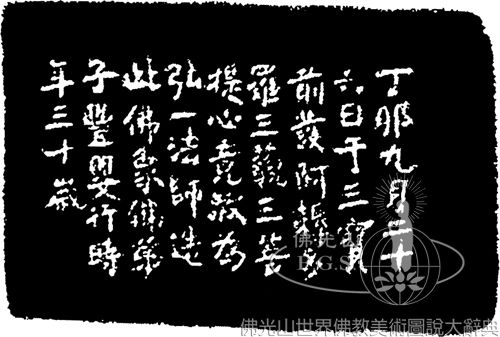 丁卯九月二十
六日于三寶
前發阿耨多
羅三藐三菩
提心竟敬為
弘一法師造
此佛象
子豐嬰行時
年三十歲
佛光山
佛光山世界佛教美術圖說大辭典